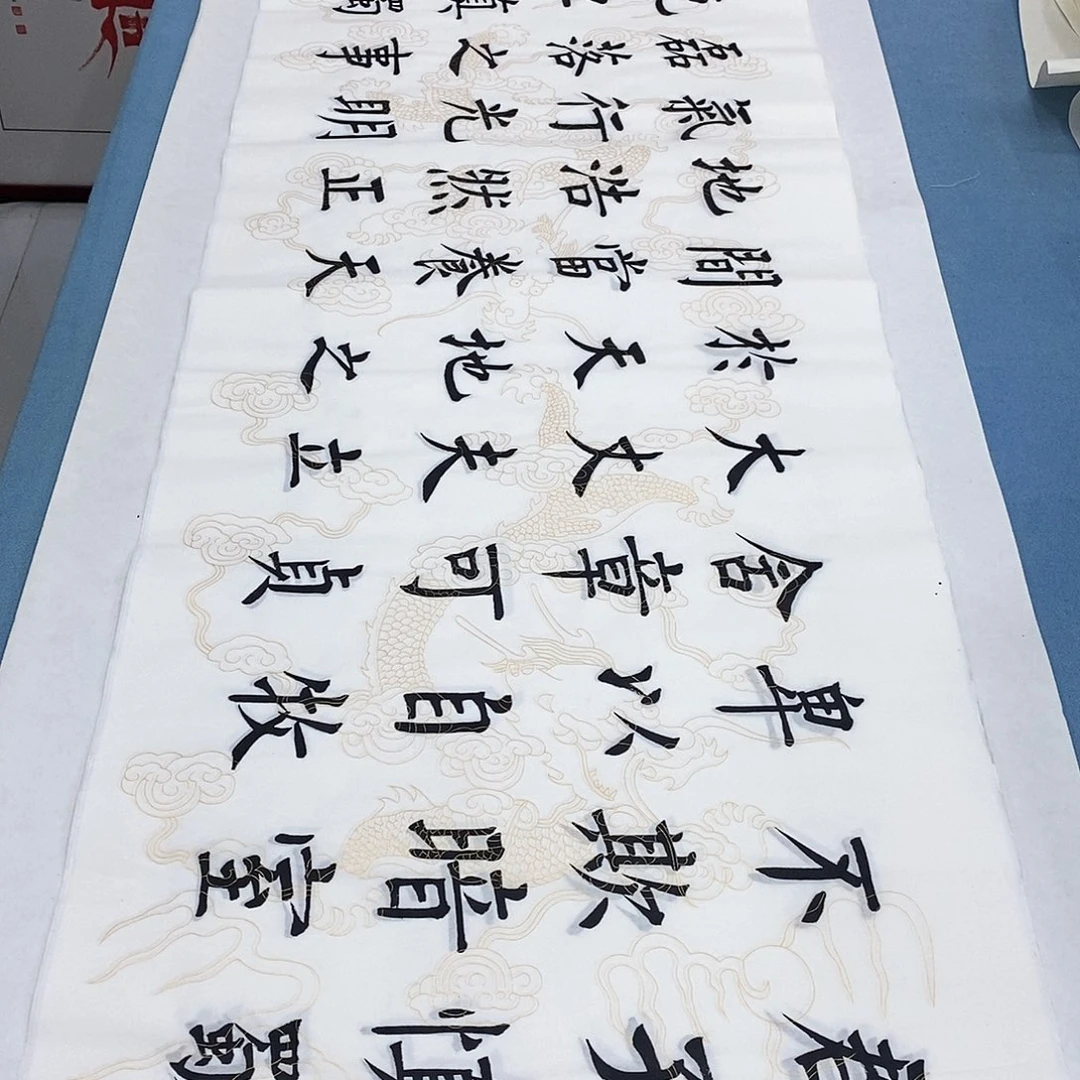 君子慎獨
不欺暗室
卑以自牧
含章可貞
大丈夫立
於天地之
間當養天
地浩然正
氣行光明
磊落之事
慎獨